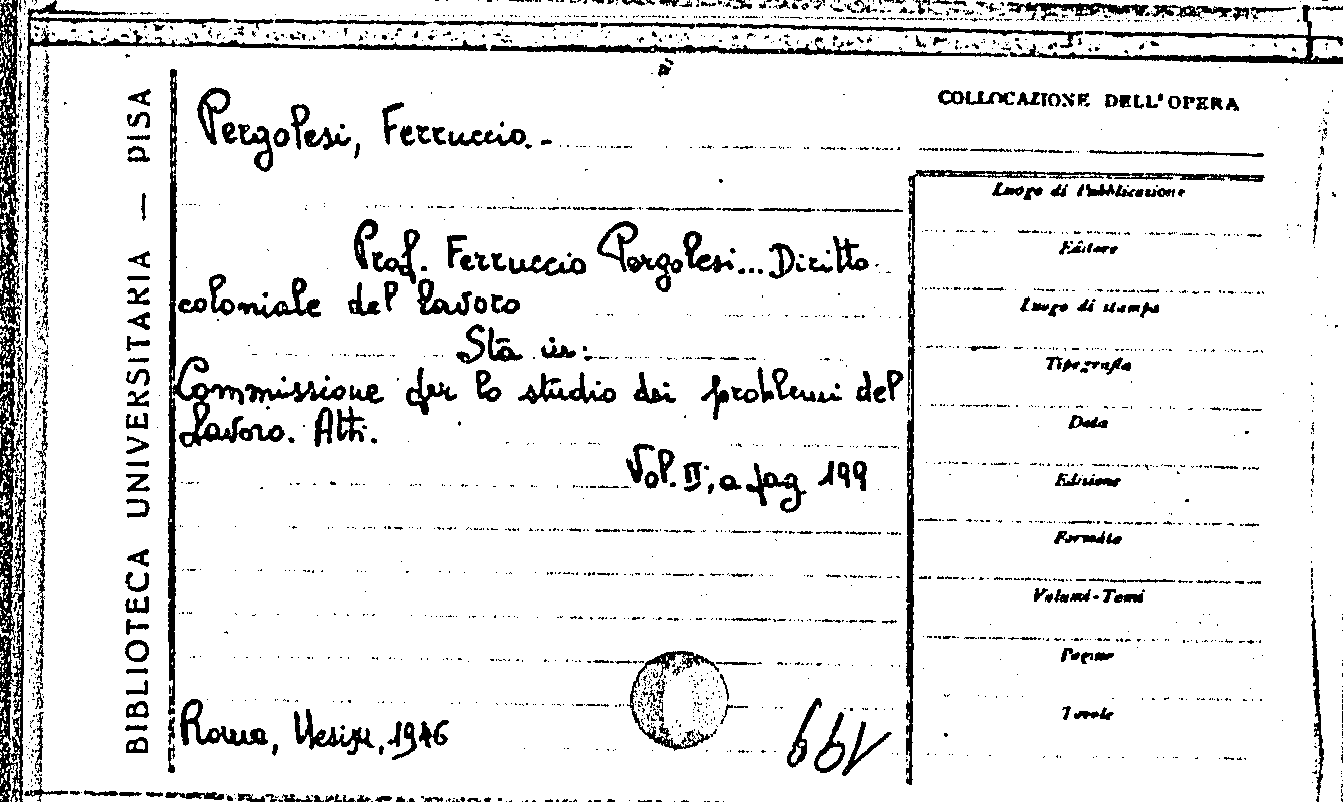 BIBLIOTECA UNIVERSITARIA — PISA
Pergolesi, Ferruccio. -
Prof. Ferruccio Pergolesi... Diritto
coloniale del lavoro
Sta in:
Commissione per lo studio dei problemi del
lavoro. Atti.
Vol. II, a pag 199
Roma, 1946
COLLOCAZIONE DELL'OPERA
Luogo di Pubblicazione
Editore
Luogo di stampa
Tipografia
Data
Edizione
Formato
Volumi-Tomi
Pagine
Tavole